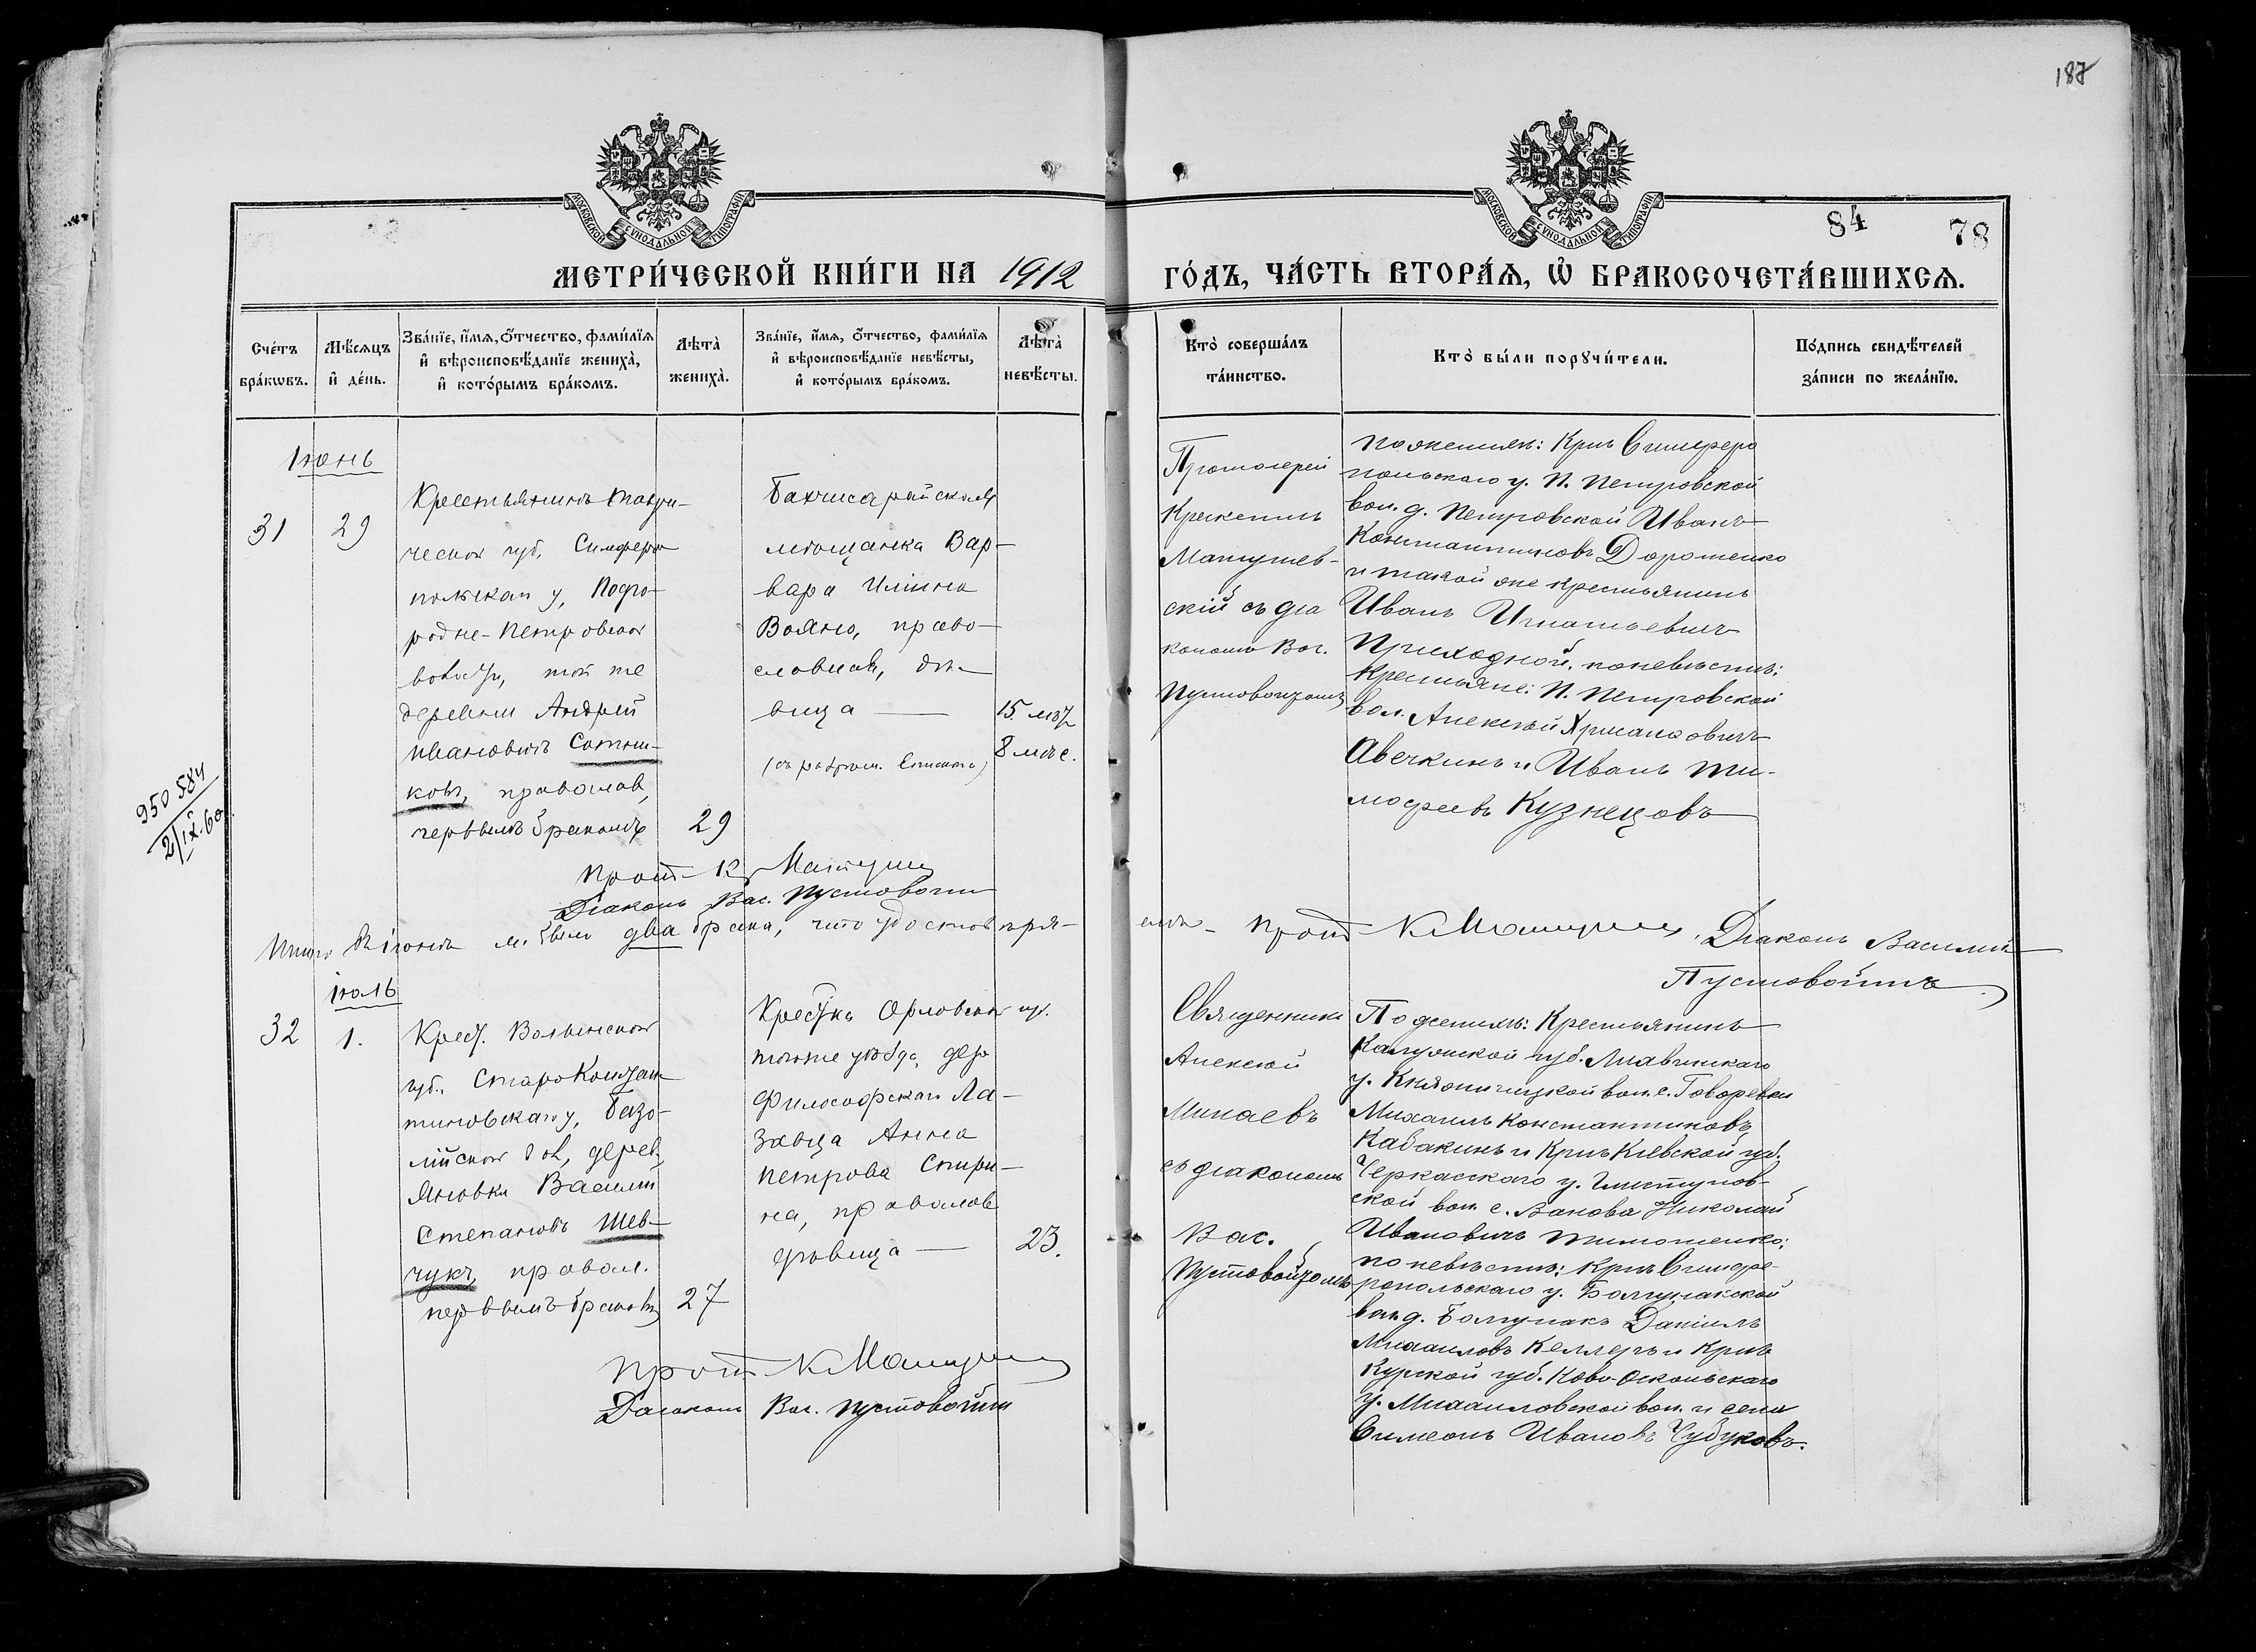 187
84
78
МОСКОВСКОЙ СѴНОДАЛЬНОЙ ТИПОГРАФІИ
МОСКОВСКОЙ СѴНОДАЛЬНОЙ ТИПОГРАФІИ
МЕТРИ́ЧЕСКОЙ КНИ́ГИ НА 1912
ГО́ДЪ, ЧА́СТЬ ВТОРА́Ѧ, Ѡ҆ БРАКОСОЧЕТА́ВШИХСѦ.
Сче́тъ
бра́кѡвъ.
Мѣ́сѧцъ
и҆ де́нь.
Зва́нїе, и҆́мѧ, ѻ҆́тчество, фами́лїѧ
и҆ вѣроисповѣ́данїе жениха̀,
и҆ кото́рымъ бра́комъ.
Лѣта̀
жениха̀.
Зва́нїе, и҆́мѧ, ѻ҆́тчество, фами́лїѧ
и҆ вѣроисповѣ́данїе невѣ́сты,
и҆ кото́рымъ бра́комъ.
Лѣта̀
невѣ́сты.
Кто̀ соверша́лъ
та́инство.
Кто̀ бы́ли порꙋчи́тели.
По́дпись свидѣ́телей
за́писи по жела́нїю.
Іюнь
31
29
Крестьянинъ Таври-
ческой губ. Симферо-
польскаго у, Подго-
родне-Петровской
волости, той же
деревни Андрей
Ивановичъ Сотни-
ковъ, православ,
первымъ бракомъ
29
Бахчисарайская
мѣщанка Вар-
вара Ильина
Вояно, право-
славная, дѣ-
вица
(съ разрѣш. Епископа)
15 лѣтъ
8 мѣс.
Протоіерей
Крискентъ
Матушев-
скій съ діа
кономъ Вас.
Пустовойтомъ
По женихѣ: Крнъ Симферо
польскаго у. П. Петровской
вол. д. Петровской Иванъ
Константиновъ Дорошенко
и такой же крестьянинъ
Иванъ Игнатьевичъ
Приходной, по невѣстѣ:
Крестьяне: П. Петровской
вол. Алексѣй Хрисанфовичъ
Авечкинъ и Иванъ Ти-
мофеевъ Кузнецовъ
950584
2/IX.60
Прот К Матуш
Діаконъ Вас. Пустовойт
Итого въ іюнѣ м. было два брака, что удостовѣря-
емъ- Прот К Матуш, Діаконъ Василій
Пустовойтъ
Іюль
32
1.
Крест. Волынской
губ. Старо Констан
тиновскаго у, Базо-
лійской вол, дерев
Яновки Василій
Степановъ Шев-
чукъ, правосл.
первымъ бракомъ
27
Крестка Орловской губ.
того же уѣзда, дер
Философская Ла-
завца Анна
Петрова Спири-
на, православ
дѣвица
23.
Священникъ
Алексѣй
Минаевъ
съ діакономъ
Вас.
Пустовойтомъ
По женихѣ: Крестьянинъ
Калужской губ. Лихвинскаго
у. Княжищкой вол. с. Говоревки
Михаилъ Константиновъ
Кабакинъ и Крнъ Кіевской губ.
Черкасскаго у.
ской вол. с. Вакова Николай
Ивановичъ Тимошенко;
по невѣстѣ: Крнъ Симфе-
ропольскаго у. Болгунакской
вол. д. Болгунакъ Даніилъ
Михаиловъ Келлеръ и Крнъ
Курской губ. Ново-Оскольскаго
у. Михаиловской вол. и села
Симеонъ Ивановъ Чубуковъ.
Прот К Матуш
Діаконъ Вас. Пустовойт